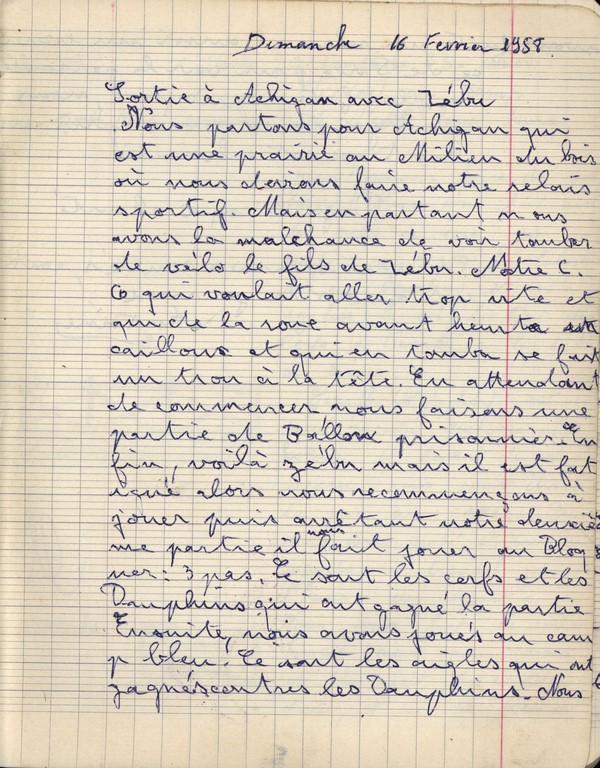 Dimanche 16 Fevrier 1958.
Sortie à Achigan avec Zébu
Nous partons pour Achigan qui
est une prairie au Milieu du bois
où nous devions faire notre relais
sportif. Mais en partant nous
avons la malchance de voir tomber
de vélo le fils de Zébu. Notre C.
G qui voulait aller trop vite et
qui de la roue avant heurta un
caillous et qui en tomba se fit
un trou à la tête. En attendant
de commencer nous faisons une
partie de Ballon prisonnier. En
fin, voilà zébu mais il est fat
igué alors nous recommençons à
jouer puis arrêtant notre deuxiè
me partie il nous fait jouer au Bloq
uer: 3 pas. Ce sont les cerfs et les
Dauphins qui ont gagné la partie
Ensuite, nous avons joués au cam
p bleu. Ce sont les aigles qui ont
gagnés contres les Dauphins. Nous